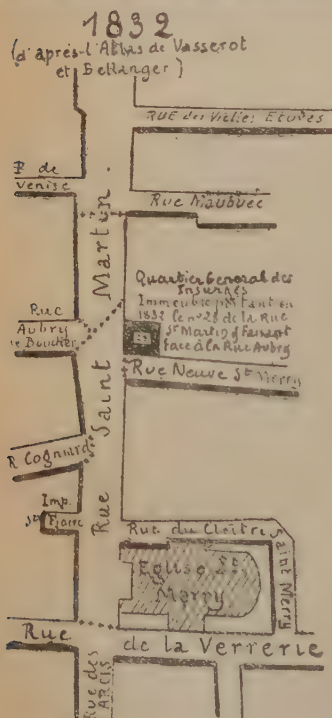 1832
(d'après l'Atlas de Vasserot
et Bellanger)
RUE des Vielles Etudes
R de
Venise
Rue Maubuée
Quartier General des
Insurgés
Immeuble portant en
1832 le n° 28 de la Rue
St Martin & faisant
face à la Rue Aubry
Rue
Aubry
le Boucher
Rue Neuve St Merry
Rue Saint Martin
R Cognard
Imp.
St Fiacre
Rue du Cloitre
Saint Merry
Eglise St
Merry
Rue de la Verrerie
Rue des
ARCIS